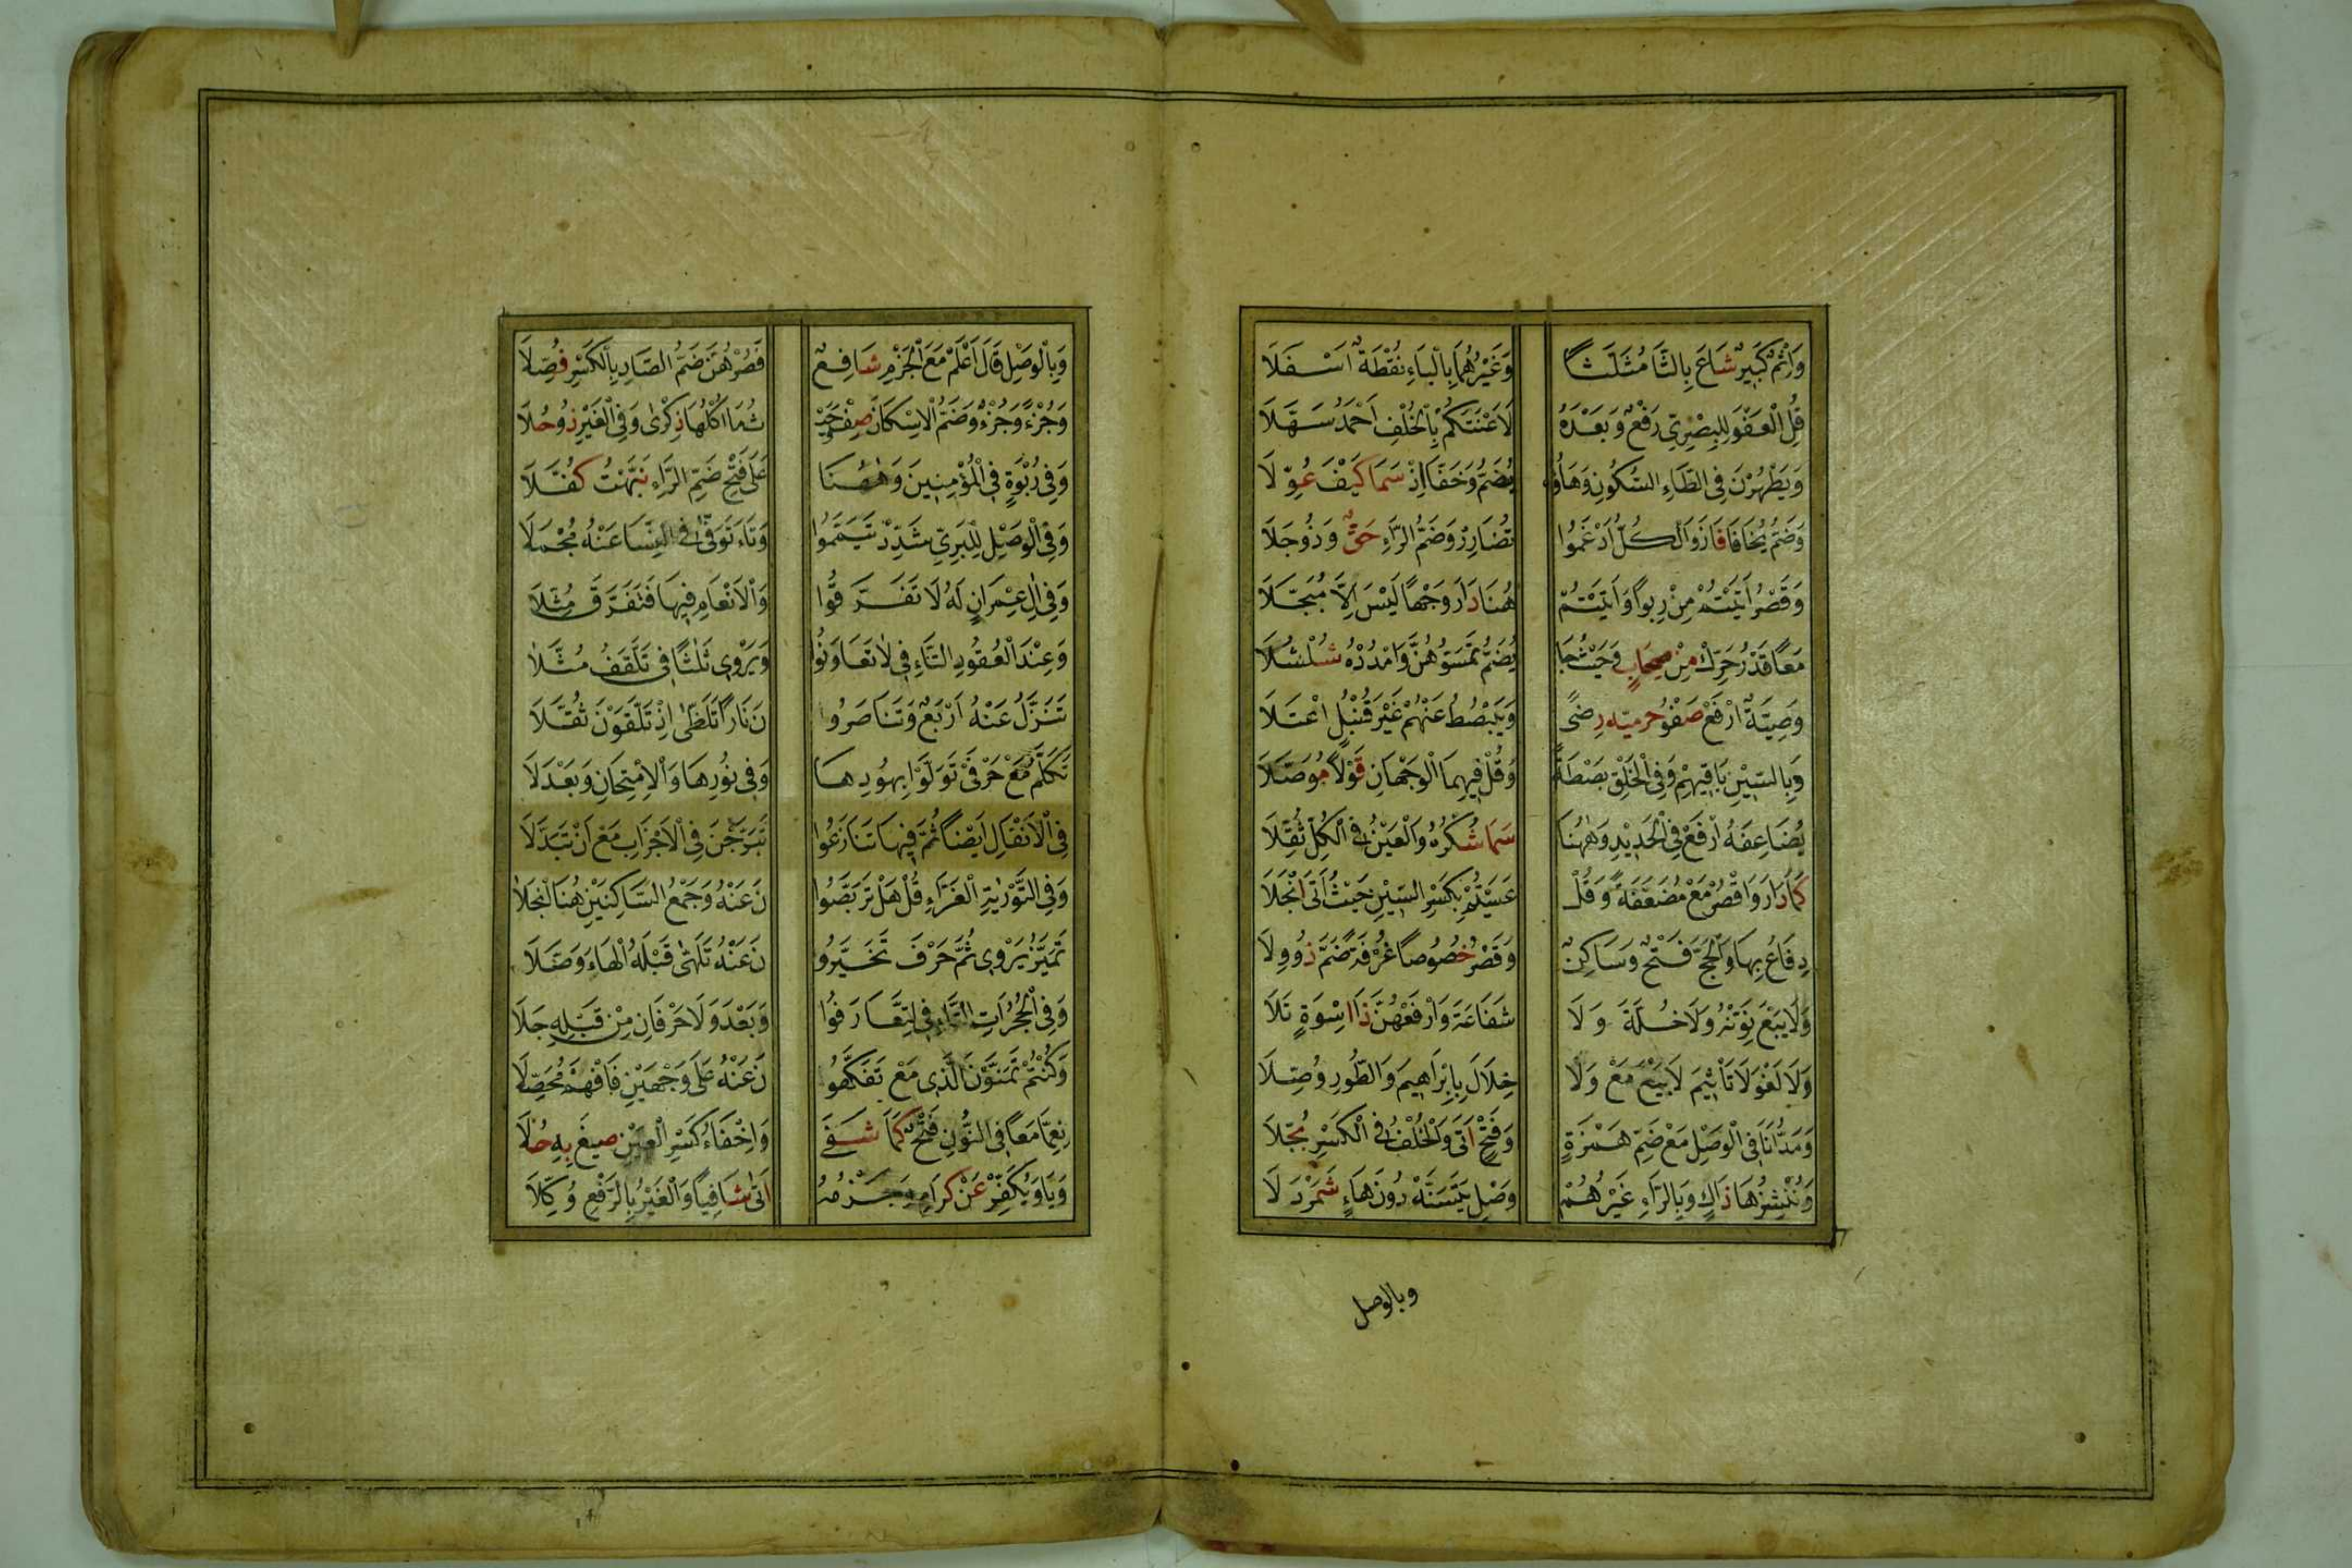 وَإِثْمٌ كَبِيرٌ شَاعَ بِالثَّا مُثَلَّثًا وَغَيْرُهُمَا بِالْبَاءِ نُقْطَةٌ اَسْفَلَا
قُلِ الْعَفْوَ لِلْبِصْرِيِّ رَفْعٌ وَبَعْدَهُ لَاَعْنَتَكُمْ بِالْخُلْفِ اَحْمَدُ سَهَّلَا
وَيَطْهُرْنَ فِي الطَّاءِ السُّكُونِ وَهَاؤُهُ يُضَمُّ وَخَفَّا اِذْ سَمَا كَيْفَ عُوِّلَا
وَضَمُّ يُخَافَا فَازَ وَالْكُلُّ اَدْغَمُوا تُضَارِرْ وَضَمُّ الرَّاءِ حَقٌّ وَذُو جَلَا
وَقَصْرُ اَتَيْتُمْ مِنْ رِبوًا وَاَتَيْتُمْ هُنَا دَارَ وَجْهًا لَيْسَ اِلَّا مُبَجَّلَا
مَعًا قَدْرُ حَرِّكْ مِنْ صِحَابٍ وَحَيْثُ جَا يُضَمُّ تَمَسُّوهُنَّ وَامْدُدْهُ شُلْشُلَا
وَصِيَّةٌ ارْفَعْ صَفْوُ حِرْمِيِّهِ رِضًى وَيَبْصُطُ عَنْهُمْ غَيْرَ قُنْبُلٍ اعْتَلَا
وَبِالسِّيْنِ بَاقِيهِمْ وَفِي الْخَلْقِ بَصْطَةً وَقُلْ فِيهِمَا الْوَجْهَانِ قَوْلًا مُوَصَّلَا
يُضَاعِفَهُ ارْفَعْ فِي الْحَدِيْدِ وَهٰهُنَا سَمَا شُكْرُهُ وَالْعَيْنُ فِي الْكُلِّ ثُقِّلَا
كَمَا دَارَ وَاقْصُرْ مَعْ مُضَعَّفَةً وَقُلْ عَسَيْتُمْ بِكَسْرِ السِّيْنِ حَيْثُ اَتَى انْجَلَا
دِفَاعُ بِهَا وَالْحَجِّ فَتْحٌ وَسَاكِنٌ وَقَصْرُ خُصُوصًا غُرْفَةً ضَمَّ ذُو وِلَا
وَلَا بَيْعَ نَوِّنْهُ وَلَا خُلَّةٌ وَلَا شَفَاعَةَ وَارْفَعْهُنَّ ذَا اسْوَةٍ تَلَا
وَلَا لَغْوَ لَا تَأْثِيْمَ لَا بَيْعَ مَعْ وَلَا خِلَالَ بِاِبْرَاهِيمَ وَالطُّورِ وُصِّلَا
وَمَدُّ اَنَا فِي الْوَصْلِ مَعْ ضَمِّ هَمْزَةٍ وَفَتْحٍ اَتَى وَالْخُلْفُ فِي الْكَسْرِ بُجِّلَا
وَنُنْشِزُهَا ذَاكٍ وَبِالرَّاءِ غَيْرُهُمْ وَصِلْ يَتَسَنَّهْ دُونَ هَاءٍ شَمَرْدَلَا
وبالوصل
وَبِالْوَصْلِ قَالَ اعْلَمْ مَعَ الْجَزْمِ شَافِعٌ فَصُرْهُنَّ ضَمُّ الصَّادِ بِالْكَسْرِ فُصِّلَا
وَجُزْءً وَجُزْءٌ وَضَمُّ الْاِسْكَانَ صِفْ وَحَيْ ثُمَا اُكْلُهَا ذِكْرٰى وَفِي الْغَيْرِ ذُو حُلَا
وَفِي رُبْوَةٍ فِي الْمُؤْمِنِيْنَ وَهٰهُنَا عَلَى فَتْحِ ضَمِّ الرَّاءِ نَبَّهْتُ كُفَّلَا
وَفِي الْوَصْلِ لِلْبَزِّيِّ شَدِّدْ تَيَمَّمُوا وَتَاءَ تَوَفَّى فِي النِّسَا عَنْهُ مُجْمَلَا
وَفِي اٰلِ عِمْرَانٍ لَهُ لَا تَفَرَّقُوا وَالْاَنْعَامِ فِيهَا فَتَفَرَّقَ مُثِّلَا
وَعِنْدَ الْعُقُودِ التَّاءِ فِي لَا تَعَاوَنُوا وَيَرْوِي ثَلٰثًا فِي تَلَقَّفُ مُثَّلَا
تَنَزَّلُ عَنْهُ اَرْبَعٌ وَتَنَاصَرُو نَ نَارًا تَلَظّٰى اِذْ تَلَقَّوْنَ ثُقِّلَا
تَكَلَّمُ مَعْ حَرْفَيْ تَوَلَّوْا بِهُودِهَا وَفِي نُورِهَا وَالْاِمْتِحَانِ وَبَعْدَلَا
فِي الْاَنْفَالِ اَيْضًا ثُمَّ فِيهَا تَنَازَعُوا تَبَرَّجْنَ فِي الْاَحْزَابِ مَعْ اَنْ تَبَدَّلَا
وَفِي التَّوْرٰيةِ الْغَرَّاءِ قُلْ هَلْ تَرَبَّصُوا نَ عَنْهُ وَجَمْعُ السَّاكِنَيْنِ هُنَا انْجَلَا
تَمَيَّزُ يَرْوِي ثُمَّ حَرْفَ تَخَيَّرُو نَ عَنْهُ تَلَهّٰى قَبْلَهُ الْهَاءَ وَصَّلَا
وَفِي الْحُجُرَاتِ التَّاءِ فِي لِتَعَارَفُوا وَبَعْدَ وَلَا حَرْفَانِ مِنْ قَبْلِهِ جَلَا
وَكُنْتُمْ تَمَنَّوْنَ الَّذِي مَعْ تَفَكَّهُو نَ عَنْهُ عَلَى وَجْهَيْنِ فَافْهَمْ مُحَصِّلَا
نِعِمَّا مَعًا فِي النُّوْنِ فَتْحٌ كَمَا شَفَى وَاِخْفَاءُ كَسْرِ الْعَيْنِ صِيغَ بِهِ حُلَا
وَيَا وَيُكَفِّرْ عَنْ كِرَامٍ وَجَزْمُهُ اَتٰى شَافِيًا وَالْغَيْرُ بِالرَّفْعِ وُكِّلَا